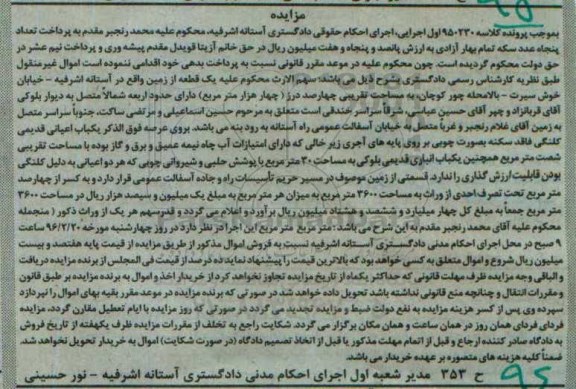 مزایده
بموجب پرونده کلاسه ۹۵۰۲۳۰ اول اجرایی، اجرای احکام حقوقی دادگستری آستانه اشرفیه، محکوم علیه محمد رنجبر مقدم به پرداخت تعداد
پنجاه عدد سکه تمام بهار آزادی به ارزش پانصد و پنجاه و هفت میلیون ریال در حق خانم آزیتا قویدل مقدم پیشه وری و پرداخت نیم عشر در
حق دولت محکوم گردیده است. چون محکوم علیه در موعد مقرر قانونی نسبت به پرداخت بدهی خود اقدامی ننموده است اموال غیر منقول
طبق نظریه کارشناس رسمی دادگستری بشرح ذیل می باشد: سهم الارث محکوم علیه یک قطعه از زمین واقع در آستانه اشرفیه - خیابان
خوش سیرت - بالامحله چور کوچان به مساحت تقریبی چهارصد درز ( چهار هزار متر مربع) دارای حدود اربعه شمالاً متصل به دیوار بلوکی
آقای قربانزاد و چپر آقای حسین عباسی، شرقاً سراسر خندقی است متعلق به مرحوم حسین اسماعیلی و مرتضی ساکت، جنوباً سراسر متصل
به زمین آقای غلام رنجبر و غرباً متصل به خیابان آسفالت عمومی راه آستانه به رود بنه می باشد. بروی عرصه فوق الذکر یکباب اعیانی قدیمی
کلنگی فاقد سکنه بصورت چوبی بر روی پایه های آجری زیر خالی که دارای امتیازات آب چاه نیمه عمیق و برق و گاز بوده با مساحت تقریبی
شصت متر مربع همچنین یکباب انباری قدیمی بلوکی به مساحت ۳۰ متر مربع با پوشش حلبی و شیروانی چوبی که هر دو اعیانی به دلیل کلنگی
بودن قابلیت ارزش گذاری را ندارد. قسمتی از زمین موصوف در مسیر حریم تأسیسات راه و جاده آسفالت عمومی قرار دارد و به کسر از چهارصد
متر مربع تحت تصرف احدی از وراث به مساحت ۳۶۰۰ متر مربع به میزان هر متر مربع به مبلغ یک میلیون و سیصد هزار ریال در مساحت ۳۶۰۰
متر مربع جمعاً به مبلغ کل چهار میلیارد و ششصد و هشتاد میلیون ریال برآورد و اعلام می گردد و قدرسهم هر یک از وراث ذکور ( منجمله
محکوم علیه آقای محمد رنجبر مقدم به این شرح می باشد: متر مربع این اجرا در نظر دارد در روز چهارشنبه مورخه ۹۶/۲/۲۰ ساعت
۹ صبح در محل اجرای احکام مدنی دادگستری آستانه اشرفیه نسبت به فروش اموال مذکور از طریق مزایده از قیمت پایه هفتصد و بیست
میلیون ریال شروع و اموال متعلق به کسی خواهد بود که بالاترین قیمت را پیشنهاد نماید ده درصد از قیمت فی المجلس از برنده مزایده دریافت
و الباقی وجه مزایده ظرف مهلت قانونی که حداکثر یکماه از تاریخ مزایده تجاوز نخواهد کرد از خریدار اخذ و اموال به برنده مزایده بر طبق قانون
و مقررات انتقال و چنانچه منع قانونی نداشته باشد تحویل داده خواهد شد در صورتی که برنده مزایده در موعد مقرر بقیه بهای اموال را نپردازد
سپرده وی پس از کسر هزینه مزایده به نفع دولت ضبط و مزایده تجدید می گردد در صورتی که روز مزایده با ایام تعطیل مقارن گردد، مزایده
فردای فردای همان روز در همان ساعت و همان مکان برگزار می گردد. شکایت راجع به تخلف از مقررات مزایده ظرف یکهفته از تاریخ فروش
به دادگاه صادر کننده ارجاع و قبل از اتمام مهلت مذکور یا قبل از اتخاذ تصمیم دادگاه (در صورت شکایت) اموال به خریدار تحویل نخواهد شد.
ضمناً کلیه هزینه های متصوره بر عهده خریدار می باشد.
ح ۳۵۳ مدیر شعبه اول اجرای احکام مدنی دادگستری آستانه اشرفیه - نور حسینی